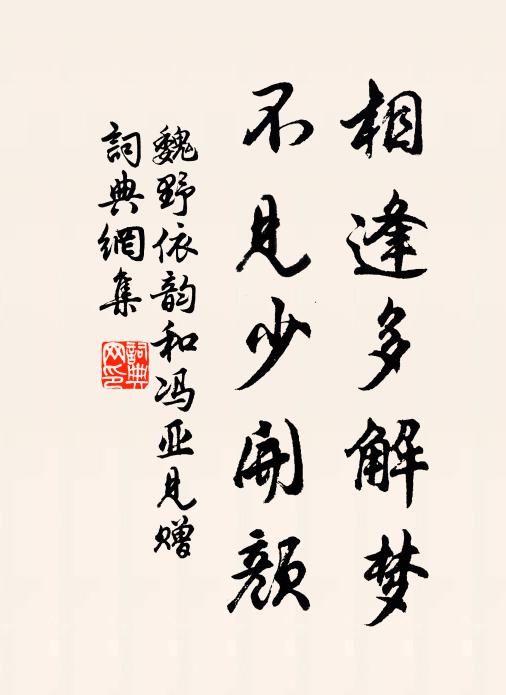 相逢多解梦
不见少开颜
魏野依韵和冯亚见赠
詞典網集
詞典网印